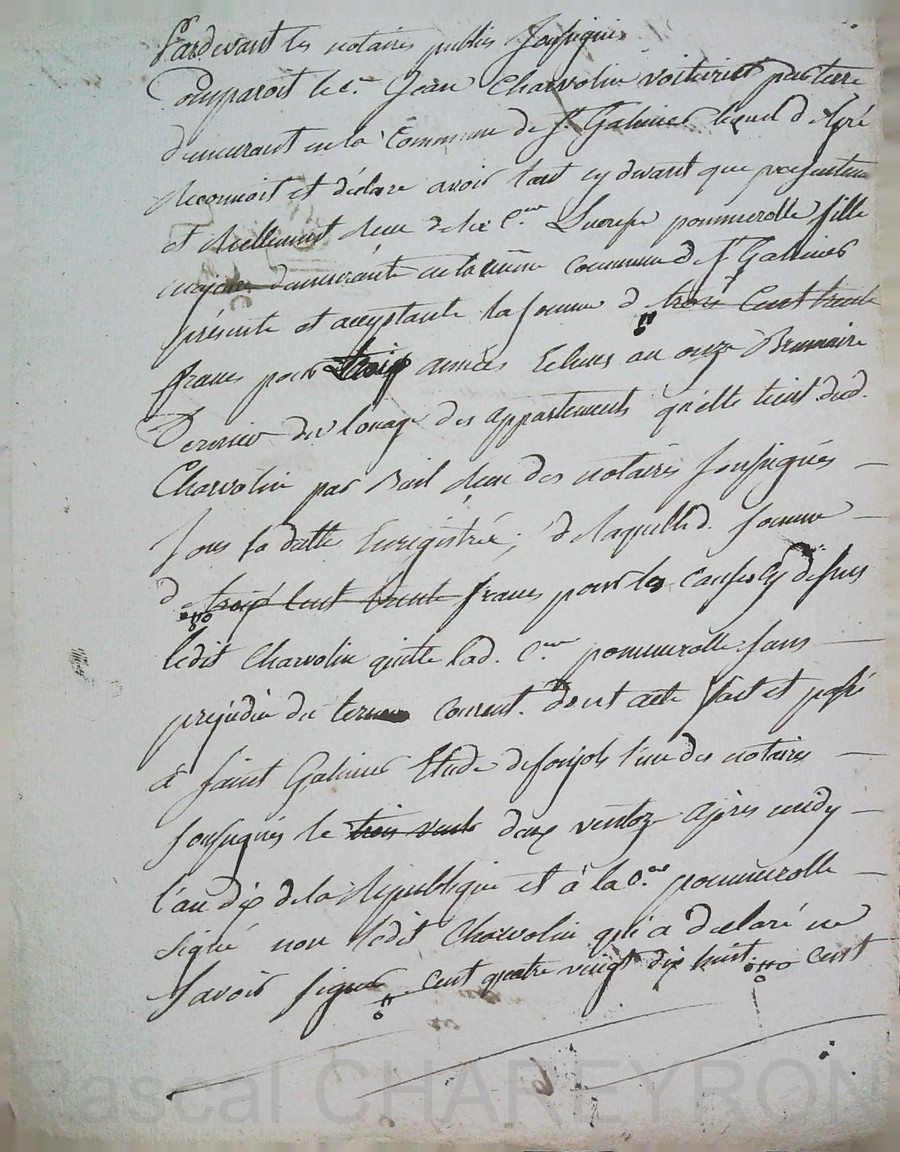 Pardevant les notaires publics soussignés
Comparoit le c.en Jean Charvolin voiturier par terre
demeurant en la Commune de st Galmier lequel de gré
Reconnoit et déclare avoir tant cy devant que présentem
et Réellement Reçu de la C.ne pommerolle fille
majeure demeurante en la même Commune de st Galmier
présente et acceptante la somme de trois Cent trente
francs pour trois années Echues au onze Brumaire
Dernier du louage des appartements qu'elle tient dud.
Charvolin par Bail Reçu des notaires soussignés
sous sa datte Enregistrée, de laquelle d. somme
de trois Cent trente francs pour les causes cy dessus
ledit Charvolin quitte lad. C.ne pommerolle sans
prejudice du terme Courant. dont acte fait et passé
à saint Galmier Etude de l'un des notaires
soussignés le trois vent deux ventoz après midy
l'an dix de la République et à la C.ne pommerolle
signé non ledit Charvolin qui a declaré ne
savoir signer Cent quatre vingt dix huit cent
Pascal CHAREYRON